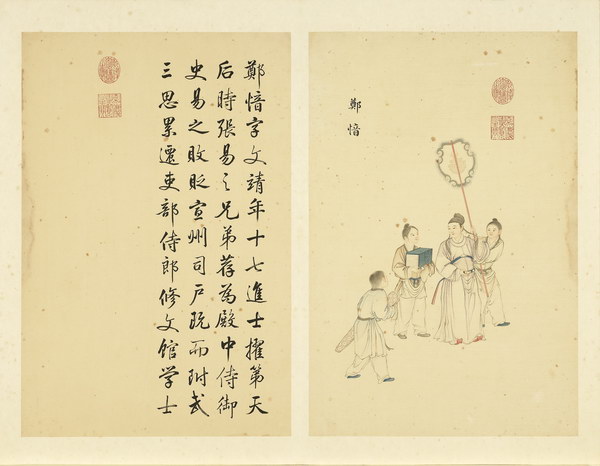 鄭愔
鄭愔字文靖年十七進士擢第天
后時張易之兄弟荐為殿中侍御
史易之敗貶宣州司戶既而附武
三思累遷吏部侍郎修文館学士